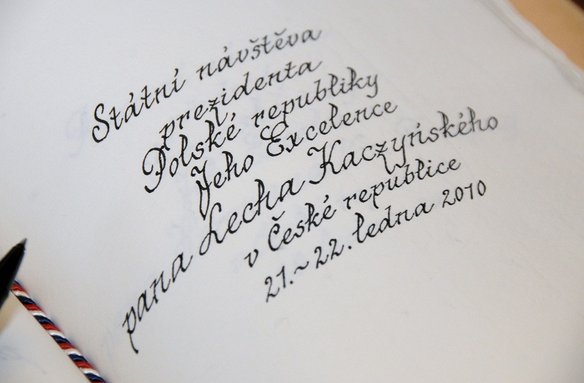 Státní návštěva
prezidenta
Polské republiky
Jeho Excelence
pana Lecha Kaczyńského
v České republice
21.~22. ledna 2010